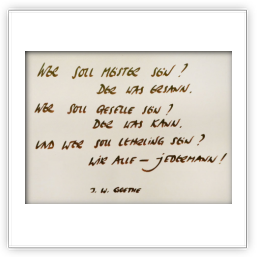 WER SOLL MEISTER SEIN?
DER WAS ERSANN.
WER SOLL GESELLE SEIN?
DER WAS KANN.
UND WER SOLL LEHRLING SEIN?
WIR ALLE – JEDERMANN!
J. W. GOETHE